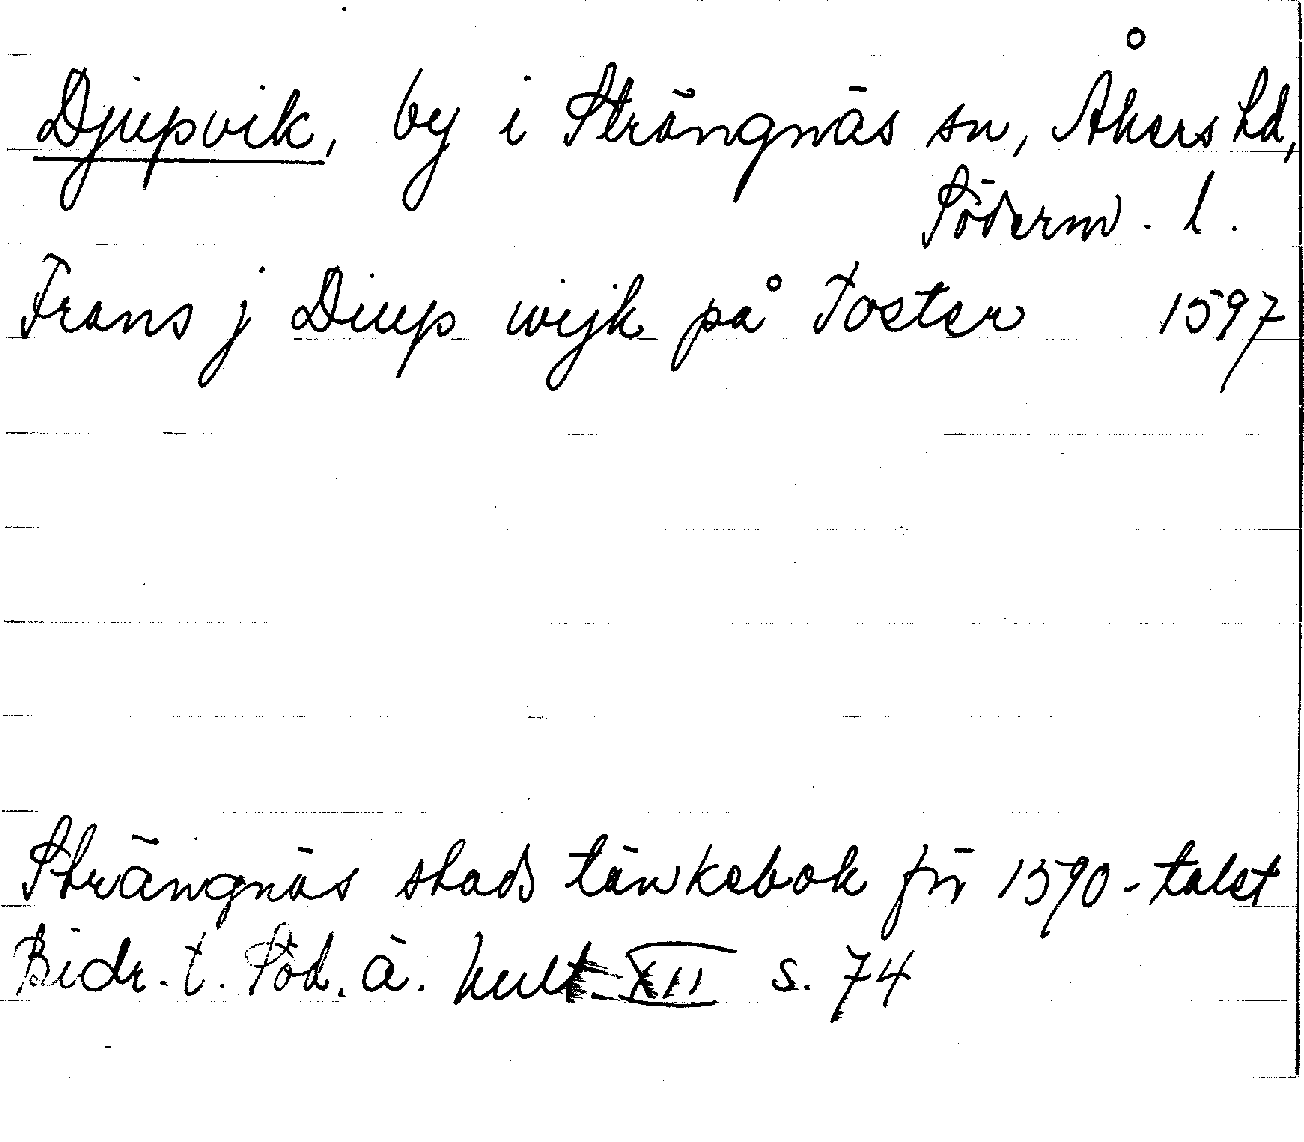 Djupvik, by i Strängnäs sn, Åkers hd,
Söderm. l.
Frans j Diup wijk på Toster 1597
Strängnäs stads tänkebok för 1590-talet
Bidr. t. Söd. ä. kult. XII s. 74